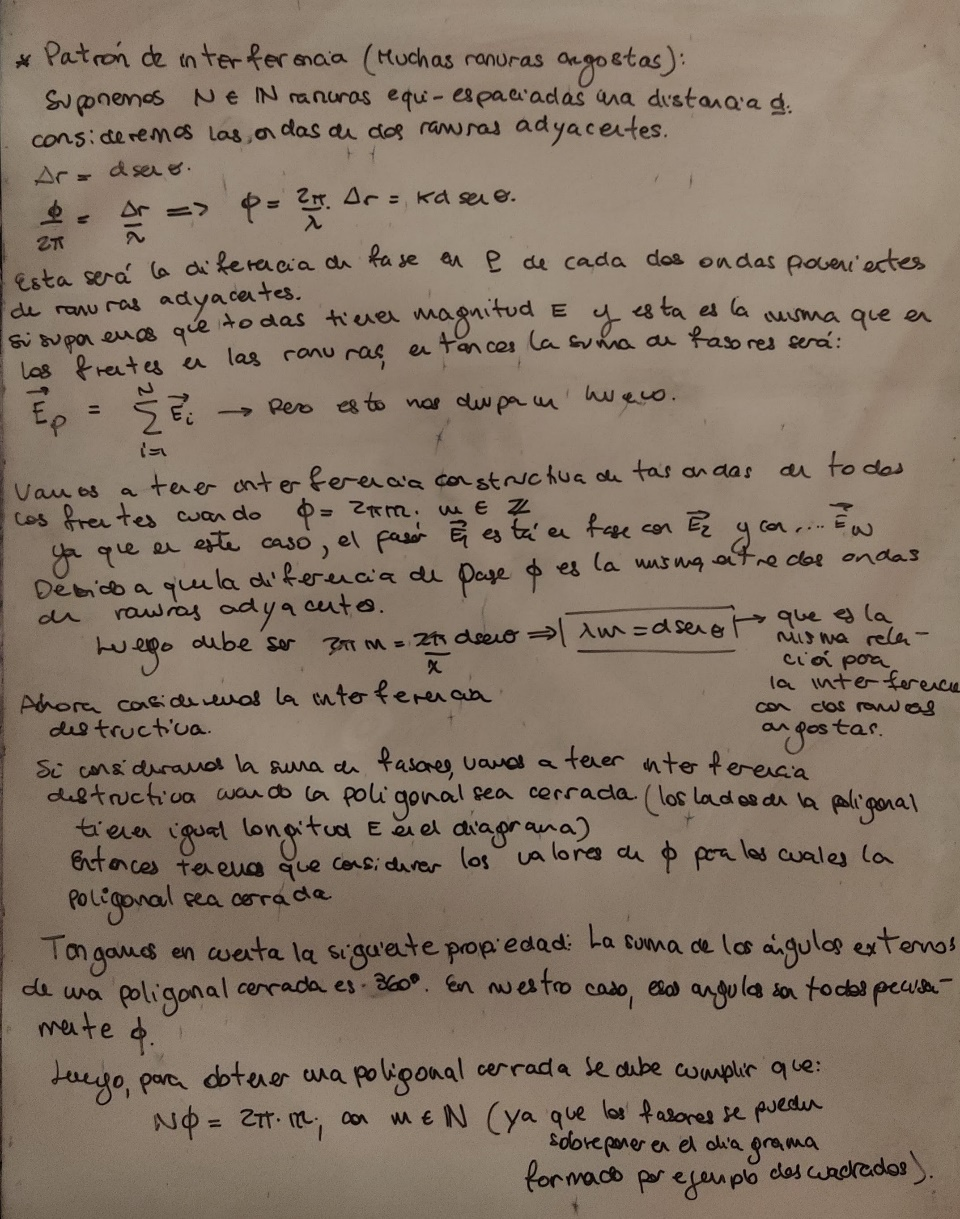 * Patrón de interferencia (Muchas ranuras angostas):
Suponemos N ∈ ℕ ranuras equi-espaciadas una distancia d.
consideremos las ondas de dos ranuras adyacentes.
Δr = d sen θ.
ϕ/2π = Δr/λ => ϕ = 2π/λ · Δr = kd sen θ.
Esta será la diferencia de fase en P de cada dos ondas provenientes
de ranuras adyacentes.
si suponemos que todas tienen magnitud E y esta es la misma que en
los frentes en las ranuras, entonces la suma de fasores será:
E⃗_P = Σ_{i=1}^{N} E⃗_i → Pero esto nos
Vamos a tener interferencia constructiva de las ondas de todos
los frentes cuando ϕ = 2πm. m ∈ ℤ
ya que en este caso, el fasor E⃗₁ está en fase con E⃗₂ y con ... E⃗_N
Debido a que la diferencia de fase ϕ es la misma entre dos ondas
de ranuras adyacentes.
Luego debe ser 2π m = 2π/λ d sen θ => | λm = d sen θ | → que es la
misma rela-
ción para
la interferencia
con dos ranuras
angostas.
Ahora consideremos la interferencia
destructiva.
Si consideramos la suma de fasores, vamos a tener interferencia
destructiva cuando la poligonal sea cerrada. (los lados de la poligonal
tienen igual longitud E en el diagrama)
Entonces tenemos que considerar los valores de ϕ para los cuales la
poligonal sea cerrada.
Tengamos en cuenta la siguiente propiedad: La suma de los ángulos externos
de una poligonal cerrada es 360°. En nuestro caso, esos angulos son todos precisa-
mente ϕ.
Luego, para obtener una poligonal cerrada se debe cumplir que:
Nϕ = 2π·m; con m ∈ ℕ (ya que los fasores se pueden
sobreponer en el diagrama
formado por ejemplo dos cuadrados).